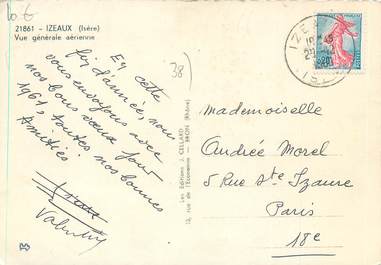 10 €
21861 - IZEAUX (Isère)
Vue générale aérienne
38)
En cette
fin d'année, nous
vous envoyons avec
nos bons vœux pour
1961, toutes nos bonnes
amitiés
Valentin
Les Editions J. CELLARD
BRON (Rhône)
IZE
RÉPUBLIQUE FRANÇAISE
0,20
POSTES
Mademoiselle
Andrée Morel
5 Rue Ste Isaure
Paris
18e